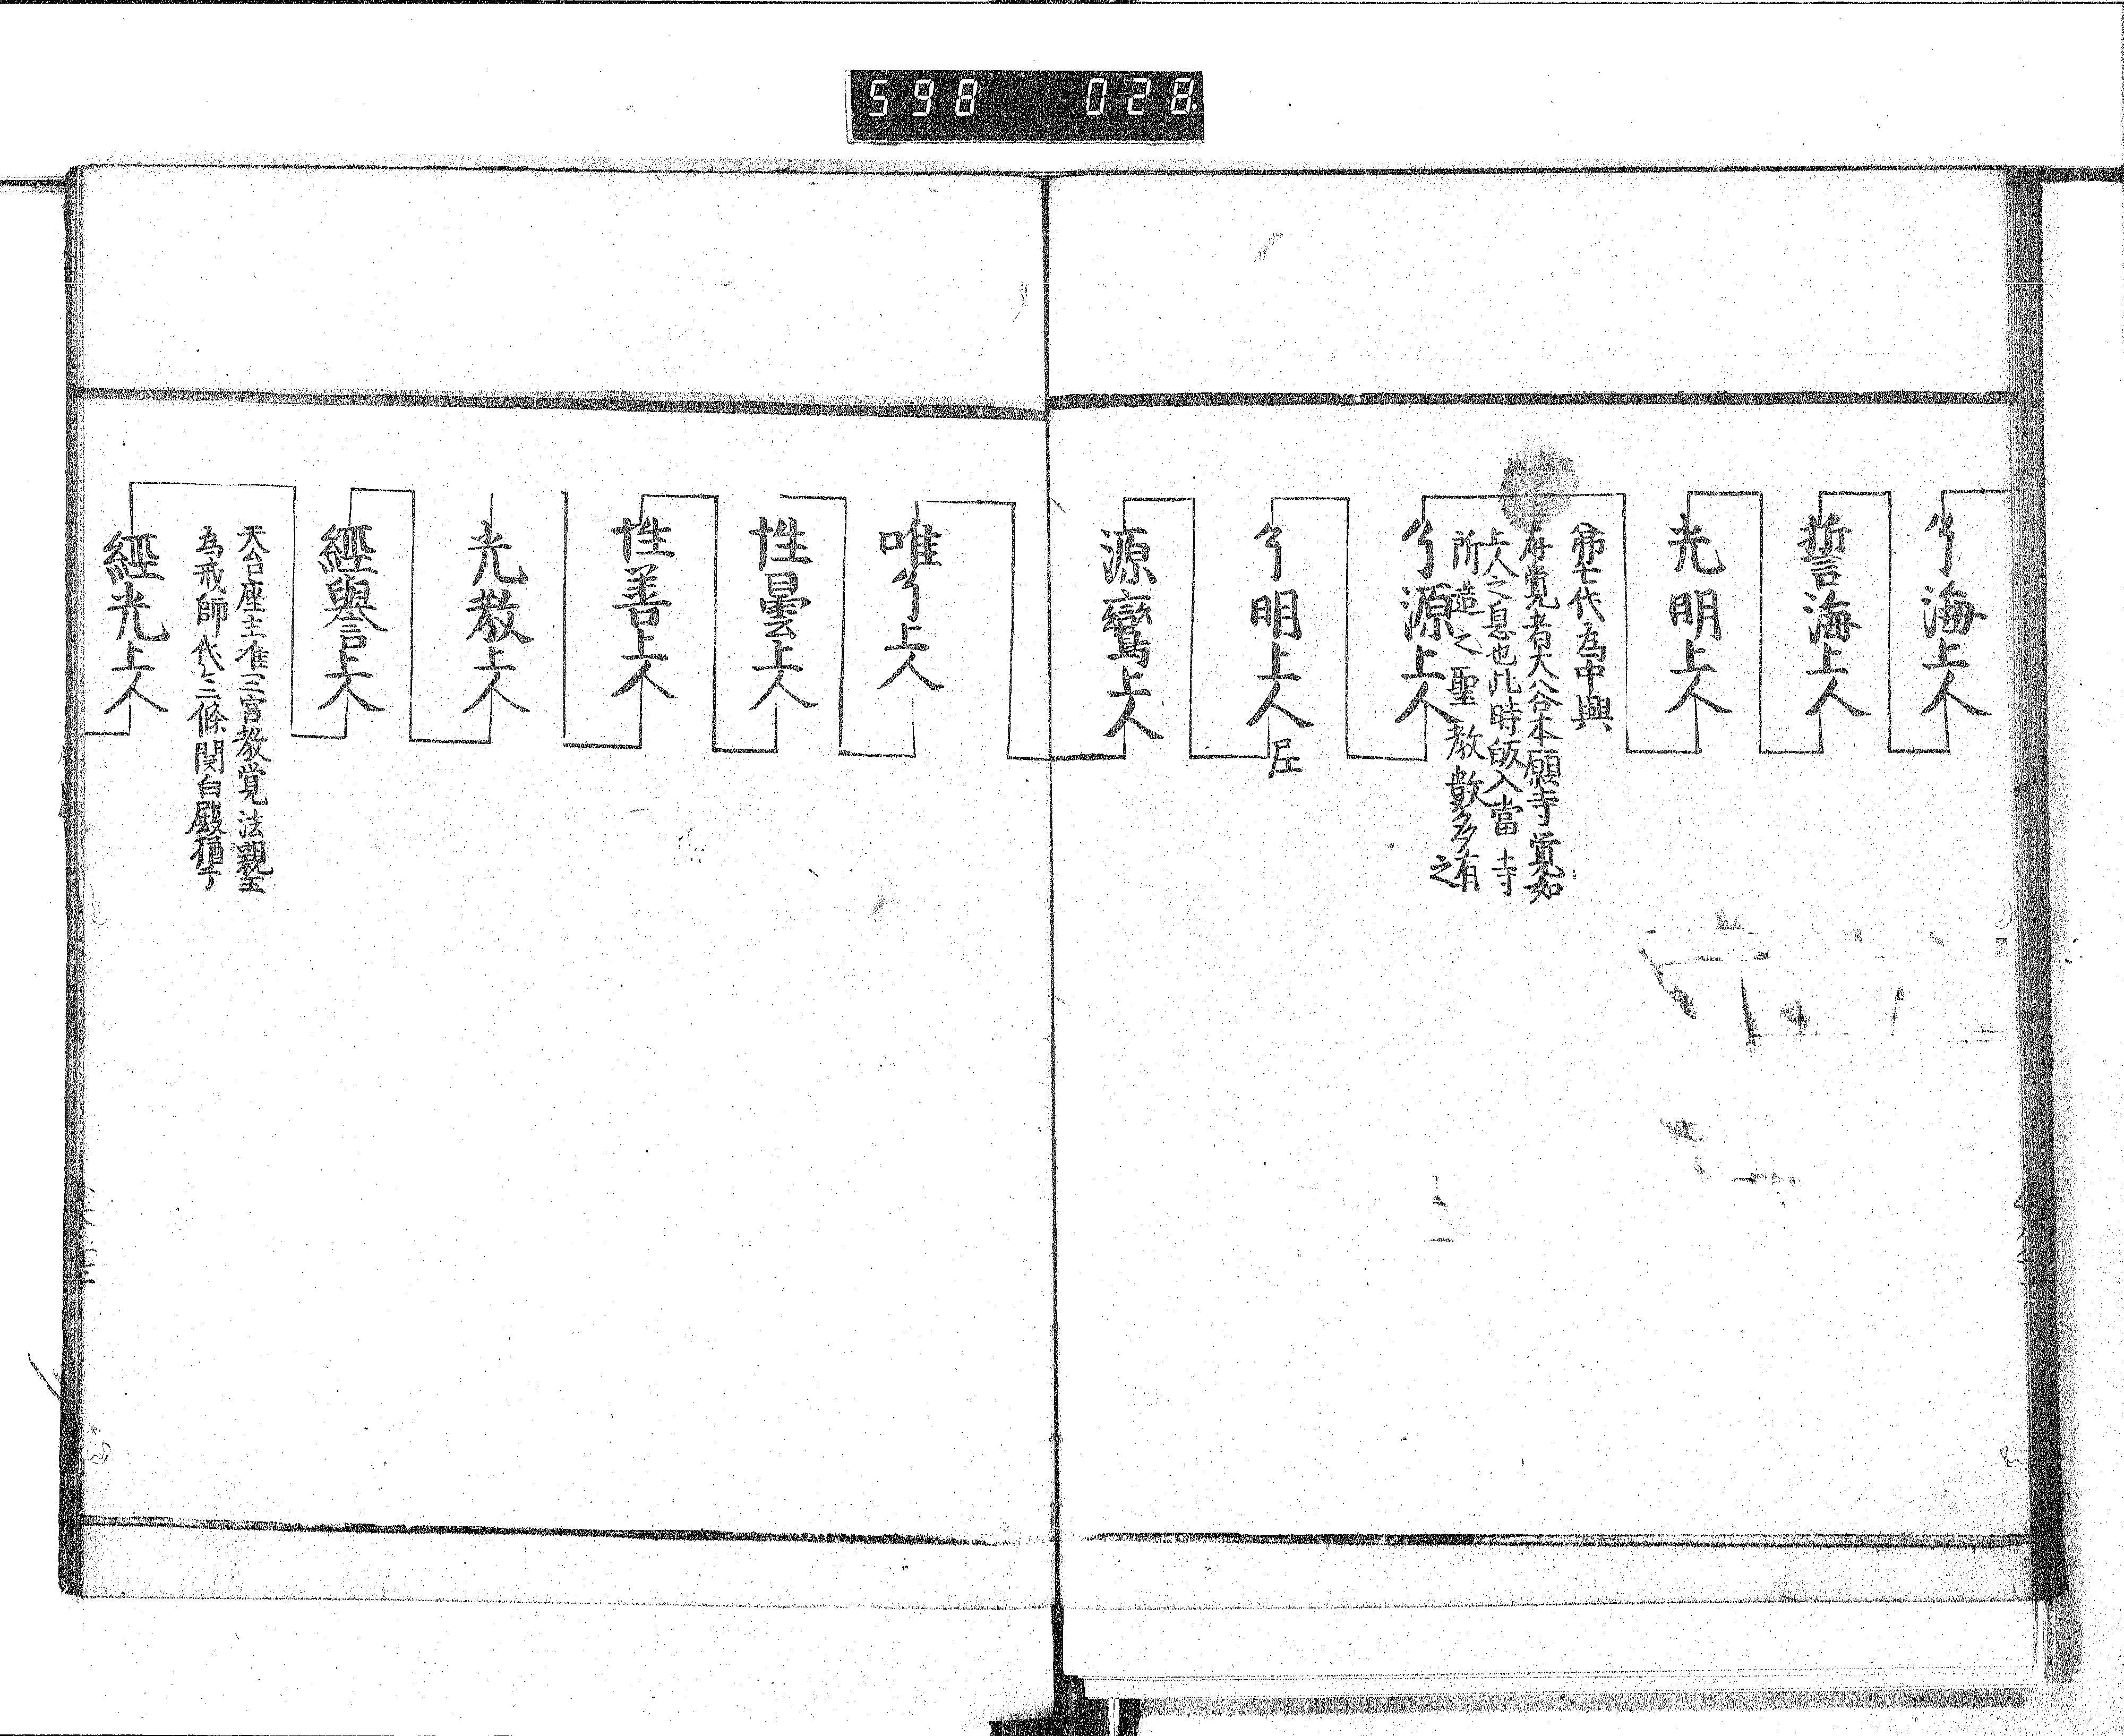 598 028
了海上人
誓海上人
光明上人
第七代為中興
存覚者大谷本願寺覚如
上人之息也此時皈入當寺
所造之聖教數多有之
了源上人
了明上人尼
源鸞上人
唯了上人
性曇上人
性善上人
光教上人
經譽上人
天台座主准三宮教覚法親王
為戒師代々二條関白殿猶子
經光上人